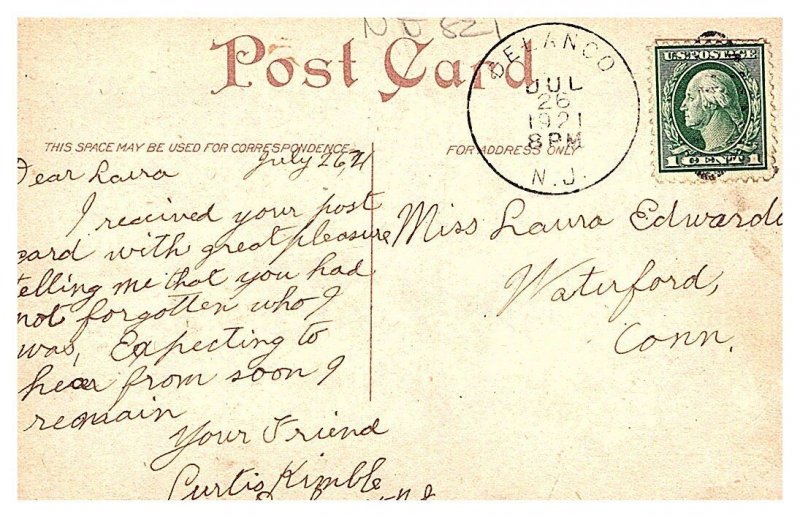 NJ 821
Post Card
DELANCO
JUL
26
1921
8 PM
N.J.
U.S. POSTAGE
1 CENT 1
THIS SPACE MAY BE USED FOR CORRESPONDENCE
FOR ADDRESS ONLY
July 26, 21
Dear Laura
I received your post
card with great pleasure
telling me that you had
not forgotten who I
was, Expecting to
hear from soon I
remain
Your Friend
Curtis Kimble
Miss Laura Edwards
Waterford,
Conn.